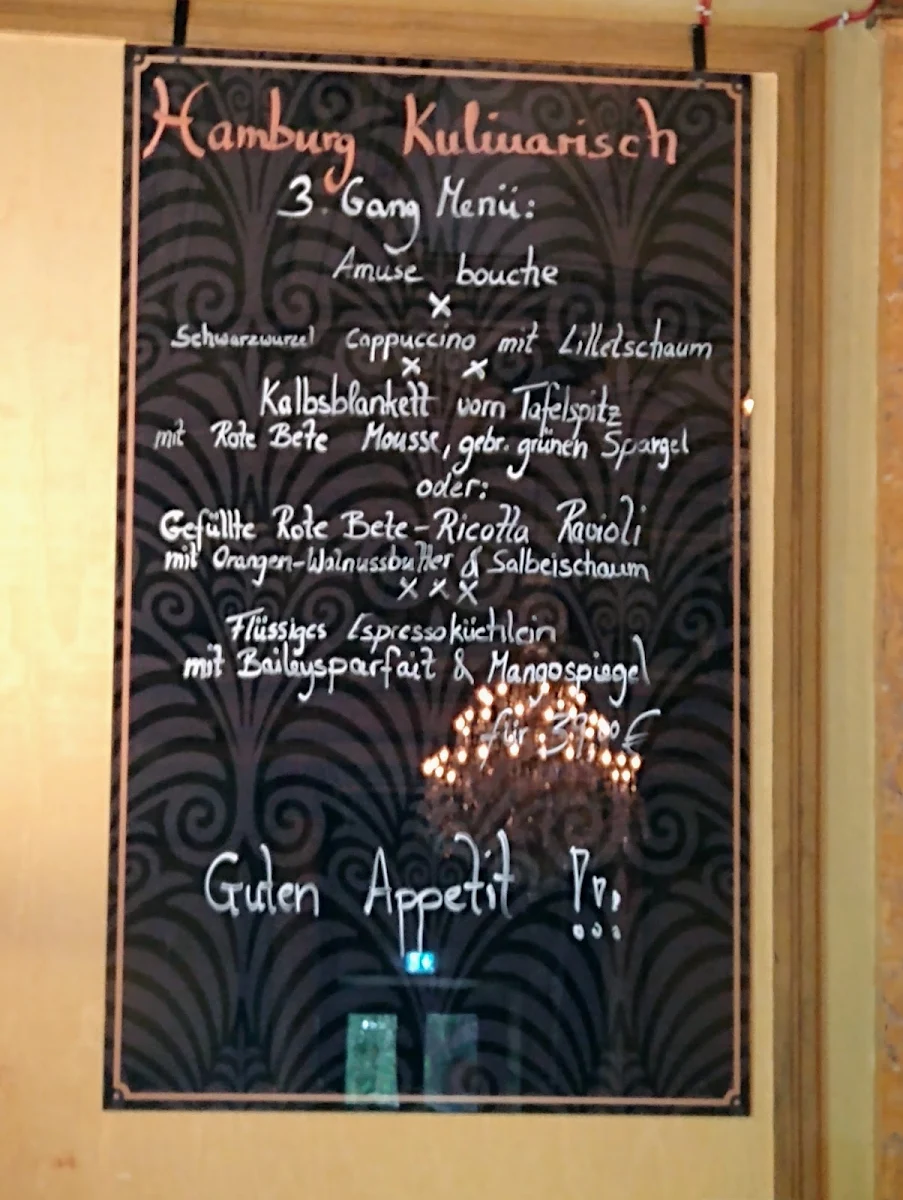 Hamburg Kulinarisch
3 Gang Menü:
Amuse bouche
x
Schwarzwurzel Cappuccino mit Lilletschaum
x x
Kalbsblankett vom Tafelspitz
mit Rote Bete Mousse, gebr. grünen Spargel
oder:
Gefüllte Rote Bete-Ricotta Ravioli
mit Orangen-Walnussbutter & Salbeischaum
x x x
Flüssiges Espressoküchlein
mit Baileysparfait & Mangospiegel
für 39,00 €
Guten Appetit !!!